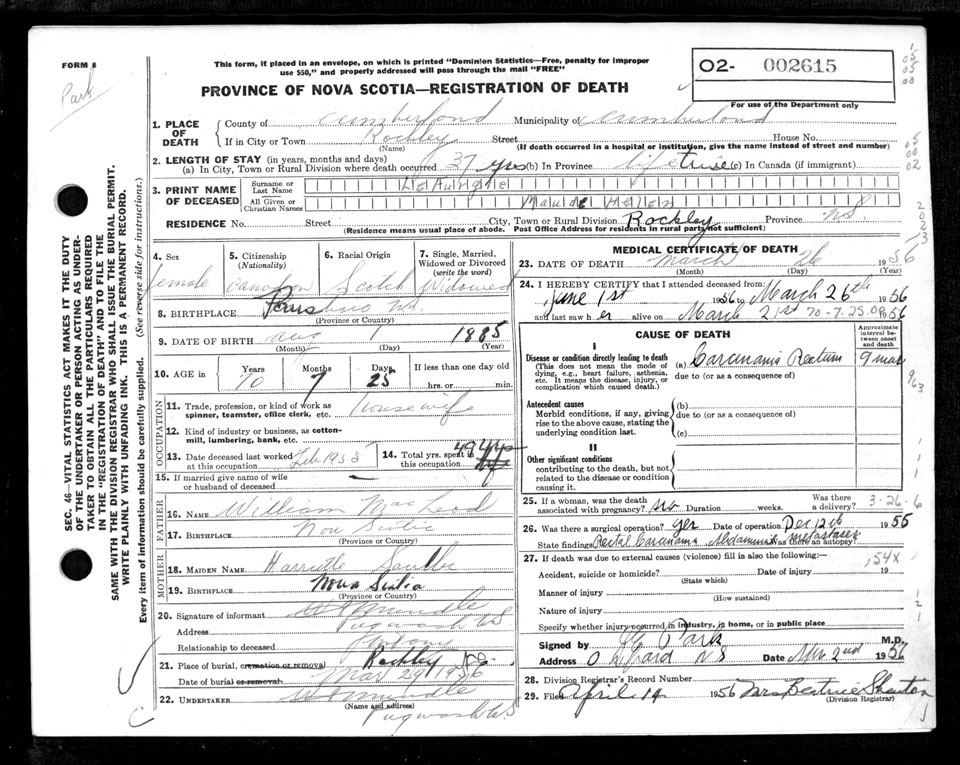 FORM 6
Park
This form, if placed in an envelope, on which is printed "Dominion Statistics—Free, penalty for improper
use $50," and properly addressed will pass through the mail "FREE"
PROVINCE OF NOVA SCOTIA—REGISTRATION OF DEATH
O2- 002615
For use of the Department only
1. PLACE OF DEATH
County of Cumberland Municipality of Cumberland
If in City or Town Rockley Street House No.
(Name) (If death occurred in a hospital or institution, give the name instead of street and number)
2. LENGTH OF STAY (in years, months and days)
(a) In City, Town or Rural Division where death occurred 37 yrs (b) In Province lifetime (c) In Canada (if immigrant)
3. PRINT NAME OF DECEASED
Surname or Last Name
All Given or Christian Names Maude Hellen
RESIDENCE No. Street City, Town or Rural Division Rockley Province N.S.
(Residence means usual place of abode. Post Office Address for residents in rural parts not sufficient)
4. Sex female
5. Citizenship (Nationality) Canadian
6. Racial Origin Scotch
7. Single, Married, Widowed or Divorced (write the word) Widowed
8. BIRTHPLACE Parrsboro N.S.
(Province or Country)
9. DATE OF BIRTH Aug 1 1885
(Month) (Day) (Year)
10. AGE in Years Months Days If less than one day old
70 7 25 hrs. or min.
OCCUPATION
11. Trade, profession, or kind of work as
spinner, teamster, office clerk, etc. housewife
12. Kind of industry or business, as cotton-
mill, lumbering, bank, etc.
13. Date deceased last worked at this occupation Feb 1955
14. Total yrs. spent in this occupation 49 yrs
15. If married give name of wife
or husband of deceased
FATHER
16. NAME William MacLeod
17. BIRTHPLACE Nova Scotia
(Province or Country)
MOTHER
18. MAIDEN NAME Harriette
19. BIRTHPLACE Nova Scotia
(Province or Country)
20. Signature of informant
Address Pugwash N.S.
Relationship to deceased
21. Place of burial, cremation or removal Rockley
Date of burial or removal Mar 29 1956
22. UNDERTAKER
(Name and address)
Pugwash N.S.
MEDICAL CERTIFICATE OF DEATH
23. DATE OF DEATH March 26 1956
(Month) (Day) (Year)
24. I HEREBY CERTIFY that I attended deceased from:
June 1st 1956 to March 26th 1956
and last saw her alive on March 21st 70-7-25.00 1956
CAUSE OF DEATH
Approximate interval between onset and death
I
Disease or condition directly leading to death
(This does not mean the mode of
dying, e.g., heart failure, asthenia,
etc. It means the disease, injury, or
complication which caused death.)
(a) Carcinoma Rectum 9 mos
due to (or as a consequence of)
Antecedent causes
Morbid conditions, if any, giving
rise to the above cause, stating the
underlying condition last.
(b)
due to (or as a consequence of)
(c)
II
Other significant conditions
contributing to the death, but not
related to the disease or condition
causing it.
25. If a woman, was the death
associated with pregnancy? no Duration weeks. Was there a delivery? 3-26-6
26. Was there a surgical operation? yes Date of operation Dec 12th 1955
State findings Rectal Carcinoma Abdominal metastases Was there an autopsy?
27. If death was due to external causes (violence) fill in also the following:—
154X
Accident, suicide or homicide? Date of injury 19
(State which)
Manner of injury
(How sustained)
Nature of injury
Specify whether injury occurred in industry, in home, or in public place
Signed by Park M.D.
Address Oxford N S Date 2nd 1956
28. Division Registrar's Record Number
29. Filed April 14 1956 Mrs Beatrice Shenton
(Division Registrar)
SEC. 46—VITAL STATISTICS ACT MAKES IT THE DUTY
OF THE UNDERTAKER OR PERSON ACTING AS UNDER-
TAKER TO OBTAIN ALL THE PARTICULARS REQUIRED
IN THE "REGISTRATION OF DEATH" AND TO FILE THE
SAME WITH THE DIVISION REGISTRAR WHO SHALL ISSUE THE BURIAL PERMIT.
WRITE PLAINLY WITH UNFADING INK. THIS IS A PERMANENT RECORD.
Every item of information should be carefully supplied. (See reverse side for instructions.)